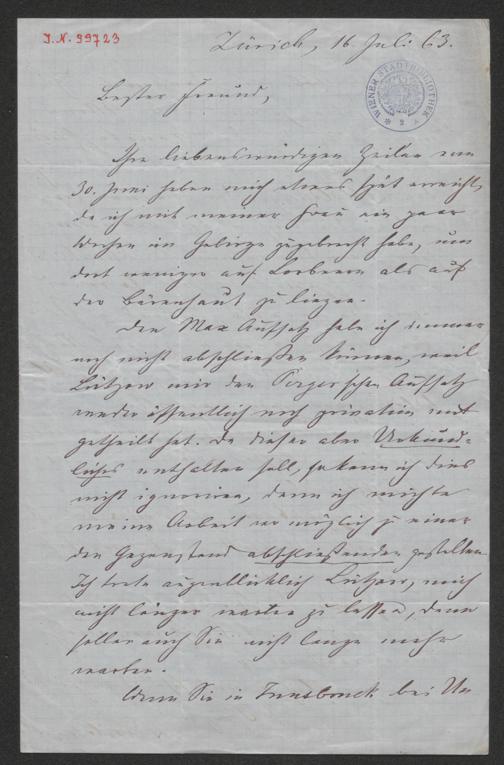 I.N. 99723
Zürich, 16. Juli 63.
WIENER STADTBIBLIOTHEK
Bester Freund,
Ihre liebenswürdigen Zeilen vom
30. Juni haben mich etwas spät erreicht,
da ich mit meiner Frau ein paar
Wochen im Gebirge zugebracht habe, um
dort weniger auf Lorbeeren als auf
der Bärenhaut zu liegen.
Den Max Aufsatz habe ich immer
noch nicht abschließen können, weil
Lützow mir den Perger'schen Aufsatz
weder öffentlich noch privatim mit
getheilt hat. Da dieser aber Urkund-
liches enthalten soll, so kann ich dies
nicht ignoriren, denn ich möchte
meine Arbeit wo möglich zu einer
den Gegenstand abschließenden gestalten.
Ich bitte augenblicklich Lützow, mich
nicht länger warten zu lassen, dann
sollen auch Sie nicht lange mehr
warten.
Wenn Sie in Innsbruck bei Un